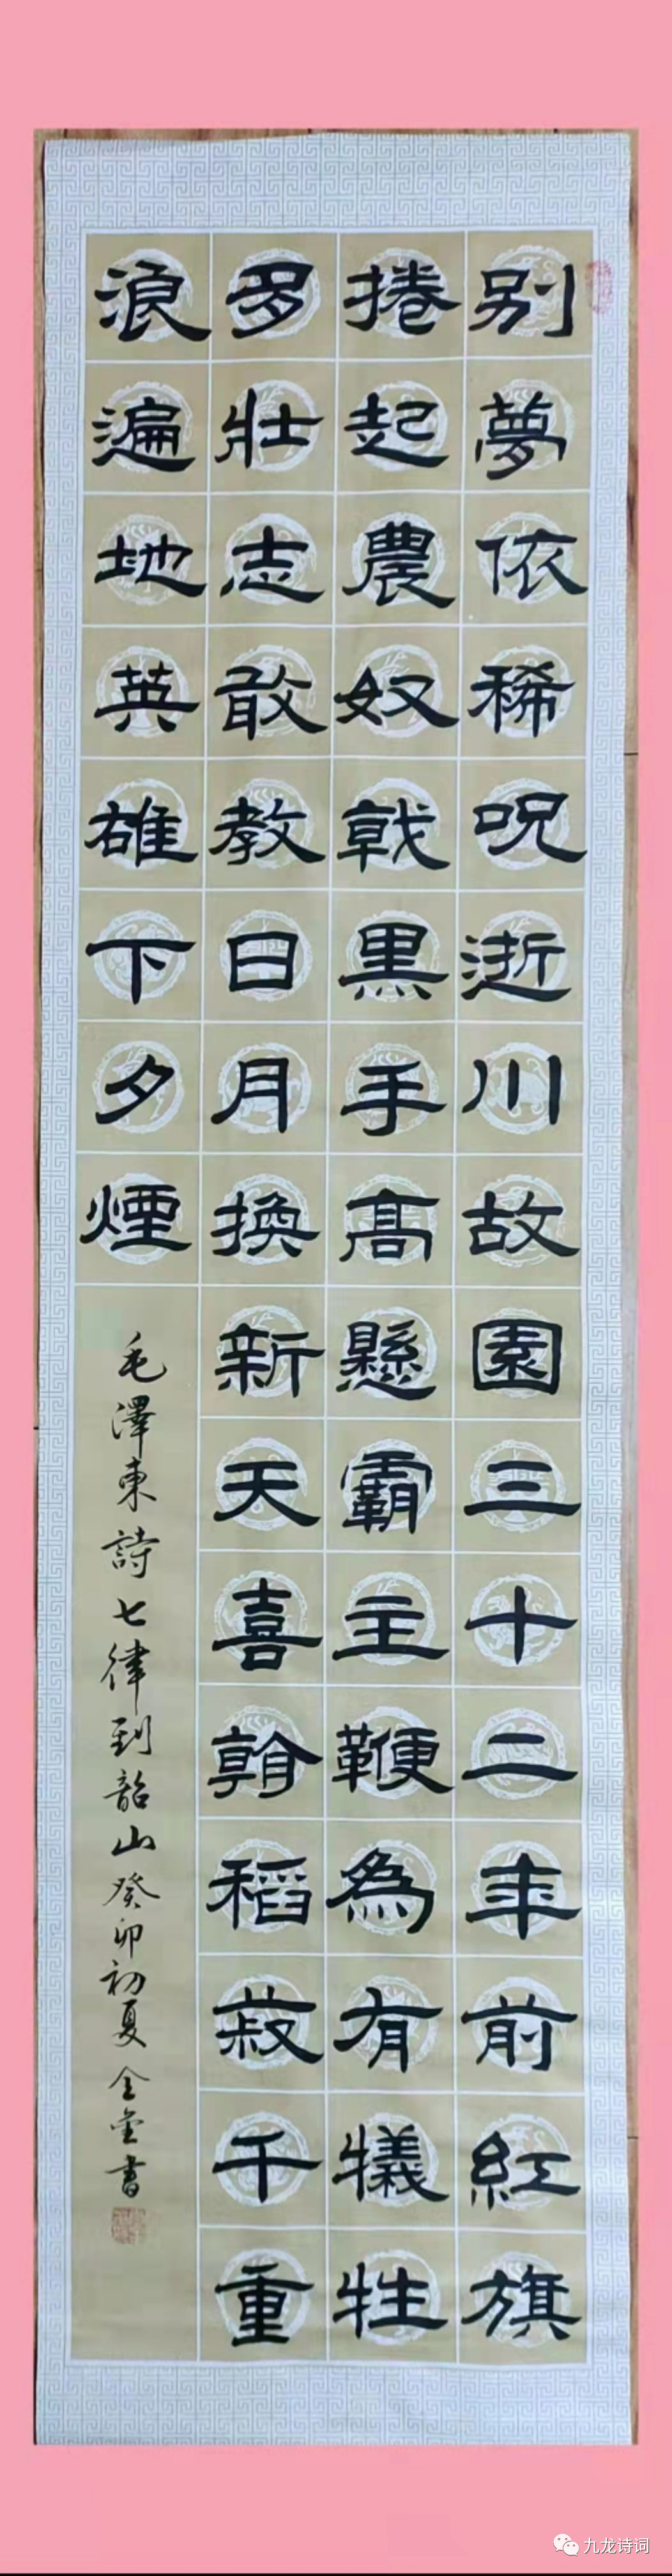 别夢依稀呪逝川故園三十二年前紅旗
捲起農奴戟黑手髙懸霸主鞭為有犧牲
多壯志敢教日月換新天喜看稻菽千重
浪遍地英雄下夕煙
毛澤東詩七律到韶山癸卯初夏書
九龙诗词